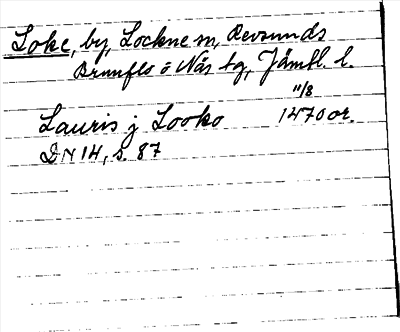 Loke, by, Lockne sn, Revsunds
Brunflo o Näs tg, Jämtl. l.
11/8
Lauris j Looko 1470 or.
DN 14, s. 87